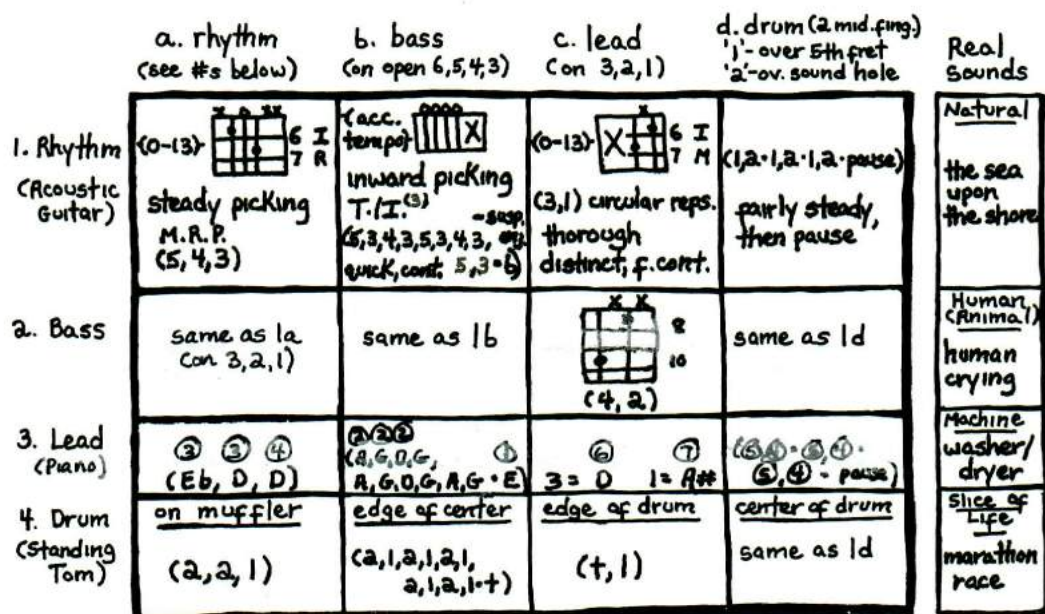 a. rhythm
(see #s below)
b. bass
(on open 6,5,4,3)
c. lead
(on 3,2,1)
d. drum (2 mid. fing.)
'1'- over 5th fret
'2'-ov. sound hole
Real
Sounds
1. Rhythm
(Acoustic
Guitar)
{0-13}
x o xx
6 I
7 R
steady picking
M.R.P.
(5, 4, 3)
{acc.
tempo}
0000
X
inward picking
T./I. (3)
(5,3,4,3,5,3,4,3,
quick, cont. 5,3-6)
{0-13}
x
X
6 I
7 M
(3,1) circular reps.
thorough
distinct, f. cont.
(1,2·1,2·1,2·pause)
fairly steady,
then pause
Natural
the sea
upon
the shore
2. Bass
same as 1a
(on 3,2,1)
same as 1b
x x
8
10
(4, 2)
same as 1d
Human
(Animal)
human
crying
3. Lead
(Piano)
3 3 4
(Eb, D, D)
2 2 2
(A,G,D,G, 1
A,G,D,G,A,G·E)
6 7
3 = D 1 = A#
(5,4·5,4·
5,4 - pause)
Machine
washer/
dryer
4. Drum
(Standing
Tom)
on muffler
(2,2,1)
edge of center
(2,1,2,1,2,1,
2,1,2,1·t)
edge of drum
(t,1)
center of drum
same as 1d
Slice of
Life
marathon
race